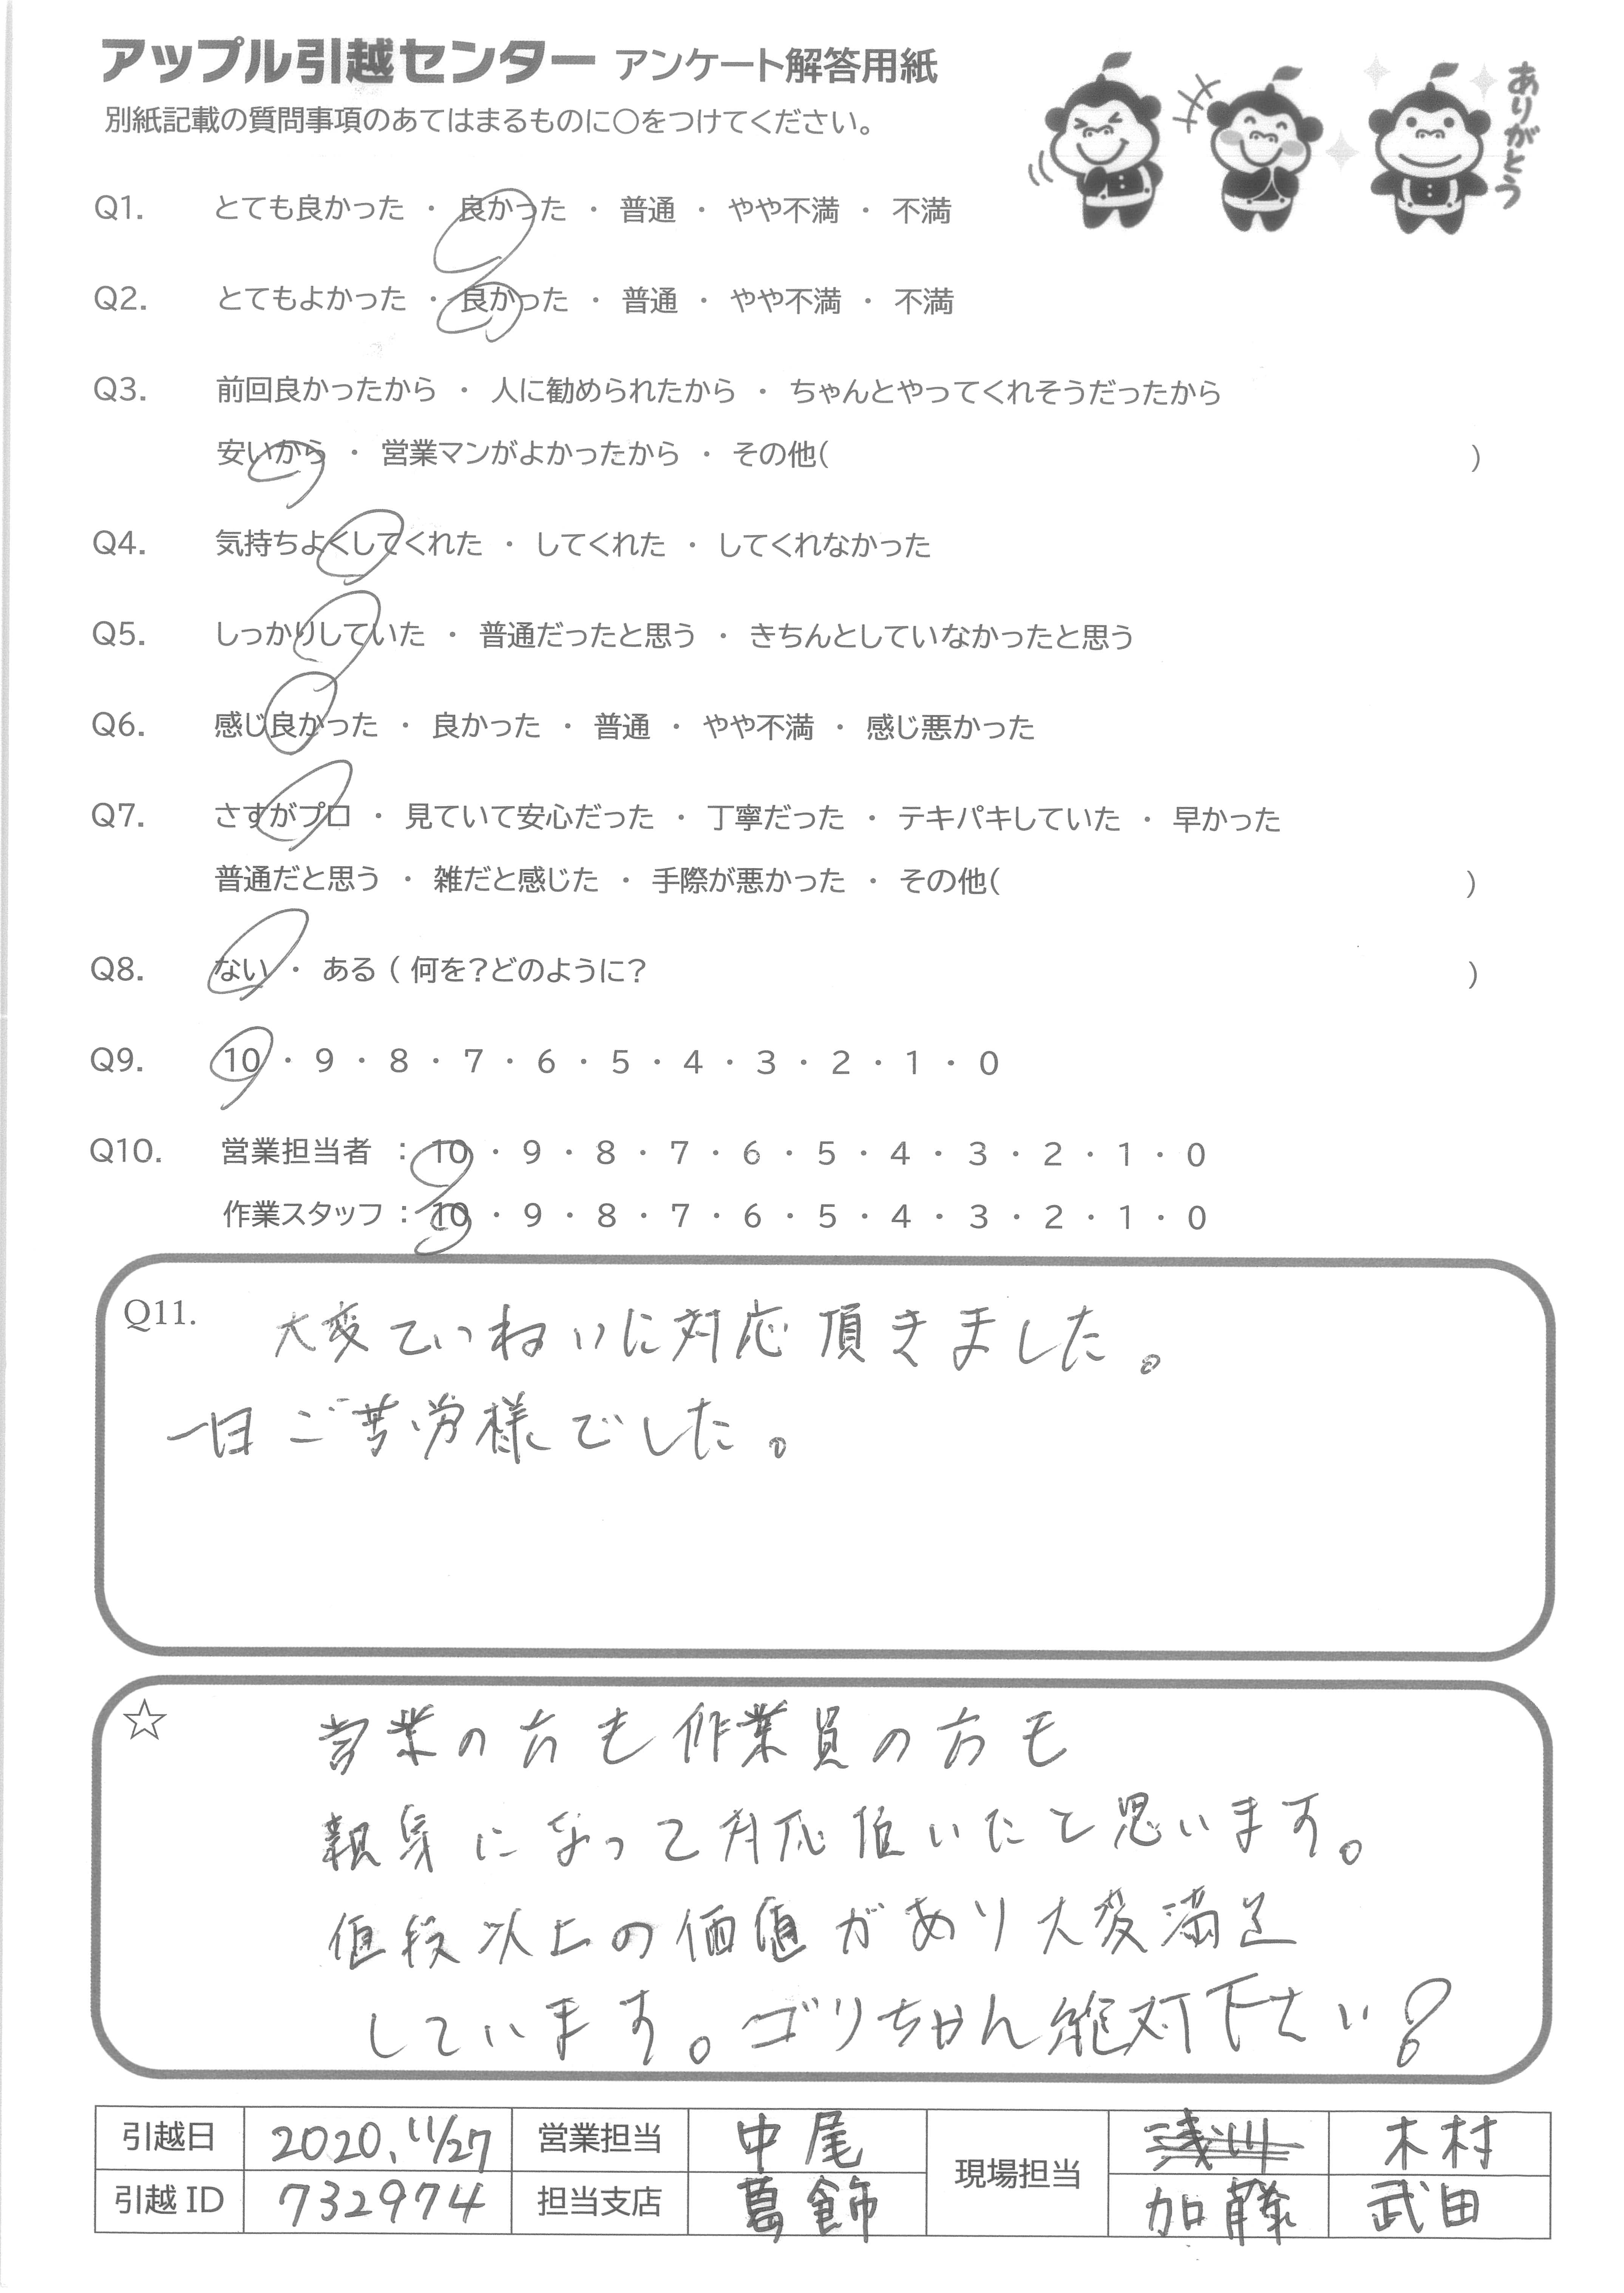 アップル引越センター アンケート解答用紙
別紙記載の質問事項のあてはまるものに○をつけてください。
ありがとう
Q1. とても良かった ・ 良かった ・ 普通 ・ やや不満 ・ 不満
Q2. とてもよかった ・ 良かった ・ 普通 ・ やや不満 ・ 不満
Q3. 前回良かったから ・ 人に勧められたから ・ ちゃんとやってくれそうだったから
安いから ・ 営業マンがよかったから ・ その他( )
Q4. 気持ちよくしてくれた ・ してくれた ・ してくれなかった
Q5. しっかりしていた ・ 普通だったと思う ・ きちんとしていなかったと思う
Q6. 感じ良かった ・ 良かった ・ 普通 ・ やや不満 ・ 感じ悪かった
Q7. さすがプロ ・ 見ていて安心だった ・ 丁寧だった ・ テキパキしていた ・ 早かった
普通だと思う ・ 雑だと感じた ・ 手際が悪かった ・ その他( )
Q8. ない ・ ある ( 何を?どのように? )
Q9. 10 ・ 9 ・ 8 ・ 7 ・ 6 ・ 5 ・ 4 ・ 3 ・ 2 ・ 1 ・ 0
Q10. 営業担当者 : 10 ・ 9 ・ 8 ・ 7 ・ 6 ・ 5 ・ 4 ・ 3 ・ 2 ・ 1 ・ 0
作業スタッフ : 10 ・ 9 ・ 8 ・ 7 ・ 6 ・ 5 ・ 4 ・ 3 ・ 2 ・ 1 ・ 0
Q11. 大変ていねいに対応頂きました。
一日ご苦労様でした。
☆ 営業の方も作業員の方も
親身になって対応頂いたと思います。
値段以上の価値があり大変満足
しています。ゴリちゃん絶対下さい!
引越日 2020.11/27 営業担当 中尾 現場担当 浅川 木村
引越ID 732974 担当支店 葛飾 加藤 武田